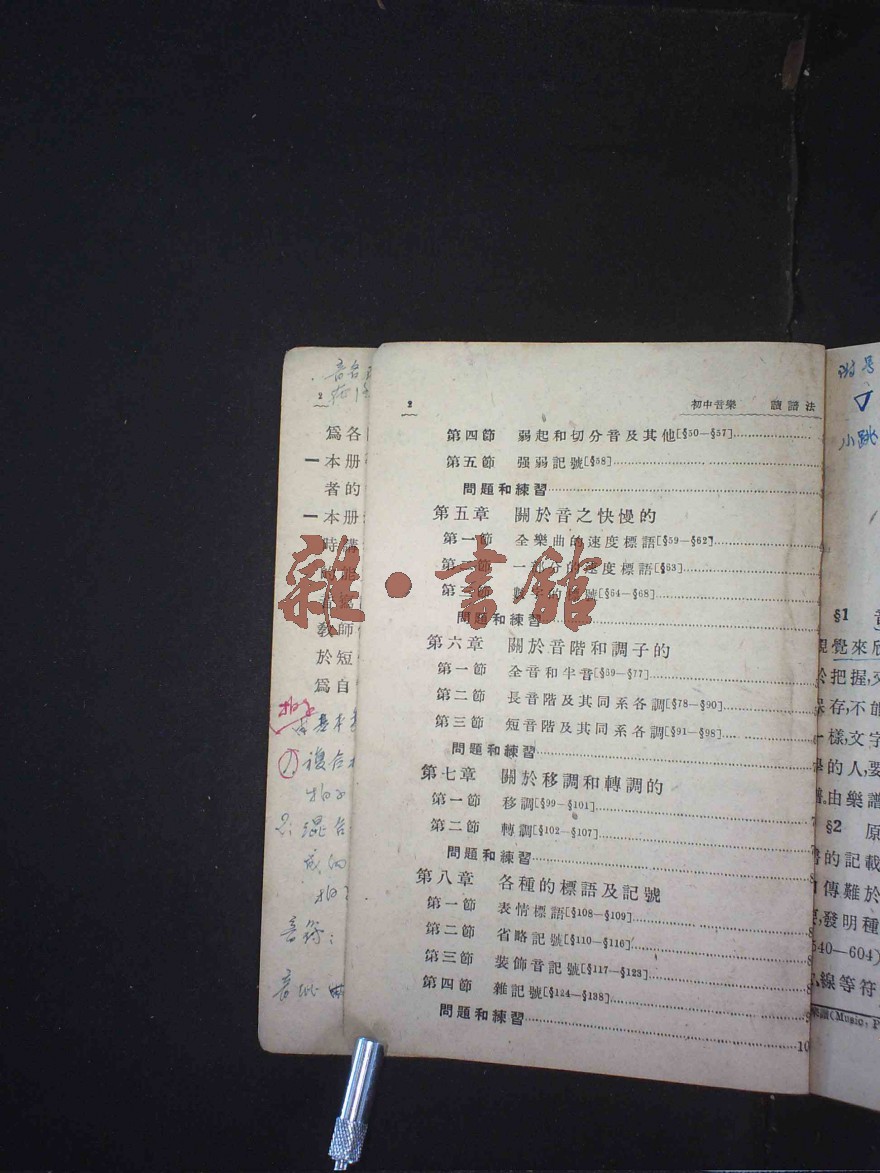 2
初中音樂 讀譜法
第四節 弱起和切分音及其他[§50—§57]
第五節 强弱記號[§58]
問題和練習
第五章 關於音之快慢的
第一節 全樂曲的速度標語[§59—§62]
第二節 一部分的速度標語[§63]
第三節 數字的記號[§64—§68]
問題和練習
第六章 關於音階和調子的
第一節 全音和半音[§69—§77]
第二節 長音階及其同系各調[§78—§90]
第三節 短音階及其同系各調[§91—§98]
問題和練習
第七章 關於移調和轉調的
第一節 移調[§99—§101]
第二節 轉調[§102—§107]
問題和練習
第八章 各種的標語及記號
第一節 表情標語[§108—§109]
第二節 省略記號[§110—§116]
第三節 裝飾音記號[§117—§123]
第四節 雜記號[§124—§138]
問題和練習
10
雜·書館
2
爲各
一本册
者的
一本册
時講
的能
教師
於短
爲自
拍子
基本
複合
拍子
2: 混合
拍子
音符:
小跳
§1
覺來欣
於把握,交
保存,不能
一樣,文字
學的人,要
譜.由樂譜
§2 原
的記載
傳難於
發明種
540—604)
線等符
(Music,P